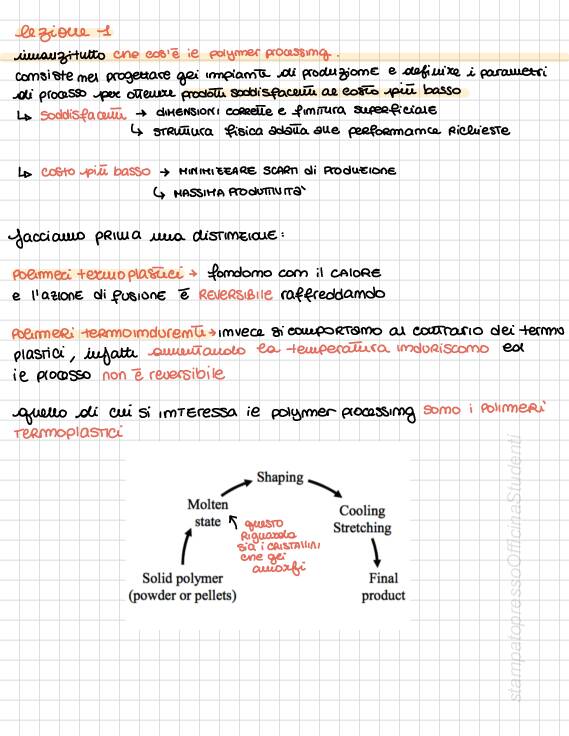 lezione 1
innanzitutto che cos'è il polymer processing.
consiste nel progettare gli impianti di produzione e definire i parametri
di processo per ottenere prodotti soddisfacenti al costo più basso
↳ soddisfacenti → DIMENSIONI CORRETTE E FINITURA SUPERFICIALE
↳ STRUTTURA fisica adatta alle performance RICHIESTE
↳ costo più basso → MINIMIZZARE SCARTI di PRODUZIONE
↳ MASSIMA PRODUTTIVITÀ
facciamo PRIMA una DISTINZIONE:
POLIMERI termoplastici → fondono con il CALORE
e l'azione di FUSIONE È REVERSIBILE raffreddando
POLIMERI TERMOINDURENTI → invece si comportano al contrario dei termo
plastici, infatti aumentando la temperatura induriscono ed
il processo non è reversibile
quello di cui si INTERESSA il polymer processing sono i POLIMERI
TERMOPLASTICI
Shaping
Molten
state
Cooling
Stretching
questo
RIGUARDA
sia i CRISTALLINI
che gli
amorfi
Solid polymer
(powder or pellets)
Final
product
stampatopressoOfficinaStudenti